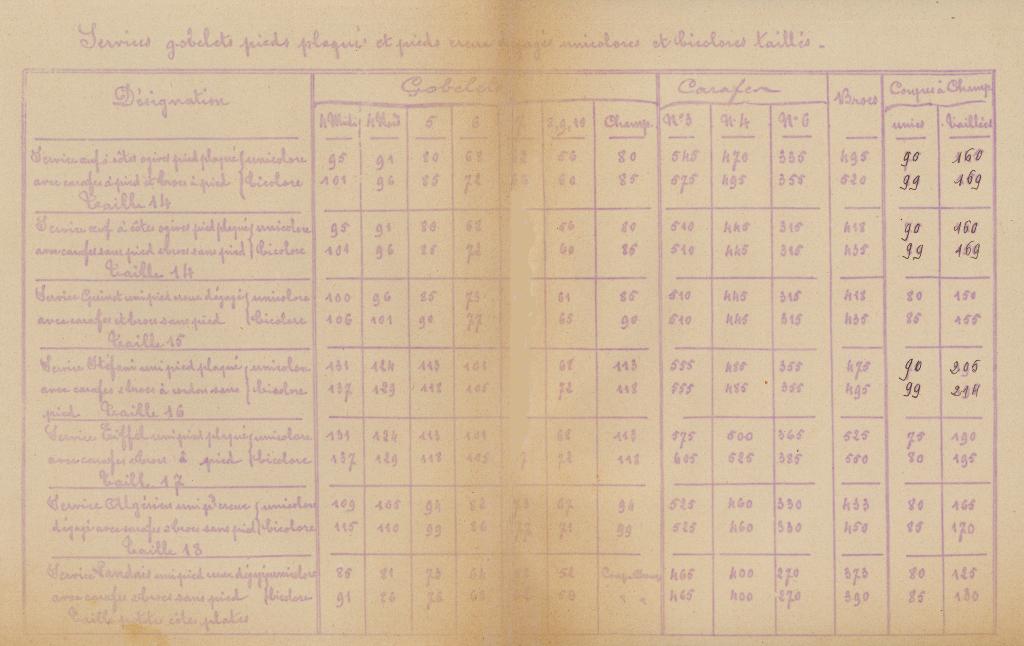 Services gobelets pieds plaqué et pieds creux dégagés unicolores et bicolores taillés.
Désignation Gobelets Carafes Brocs Coupes à Champ.
5 6 8,9,10 Champ. N°3 N°4 N°6 unies Taillées
Service œuf à côtes ogives pied plaqué unicolore 95 91 80 68 56 80 545 470 335 495 90 160
avec carafes à pied et brocs à pied bicolore 101 96 85 72 60 85 575 495 355 520 99 169
Taille 14
Service œuf à côtes ogives pied plaqué unicolore 95 91 80 68 56 80 510 445 315 418 90 160
avec carafes sans pied et brocs sans pied bicolore 101 96 85 72 60 85 510 445 315 435 99 169
Taille 14
Service uni pied creux dégagé unicolore 100 96 85 73 61 85 510 445 315 418 80 150
avec carafes et brocs sans pied bicolore 106 101 90 77 65 90 510 445 315 435 85 155
Taille 15
Service Stéfani uni pied plaqué unicolore 131 124 113 101 68 113 555 485 355 475 90 205
avec carafes et brocs à cordon sans bicolore 137 129 118 105 72 118 555 485 355 495 99 214
pied Taille 16
Service Eiffel uni pied plaqué unicolore 131 124 113 101 68 113 575 500 365 525 75 190
avec carafes et brocs à pied bicolore 137 129 118 105 72 118 605 525 385 550 80 195
Taille 17
Service Algérien uni pied creux unicolore 109 105 94 82 73 67 94 525 460 330 433 80 165
dégagé avec carafes et brocs sans pied bicolore 115 110 99 86 77 71 99 525 460 330 450 85 170
Taille 18
Service Landais uni pied creux dégagé unicolore 85 81 73 64 52 465 400 270 373 80 125
avec carafes et brocs sans pied bicolore 91 465 400 270 390 85 130
Taille petite côtes plates